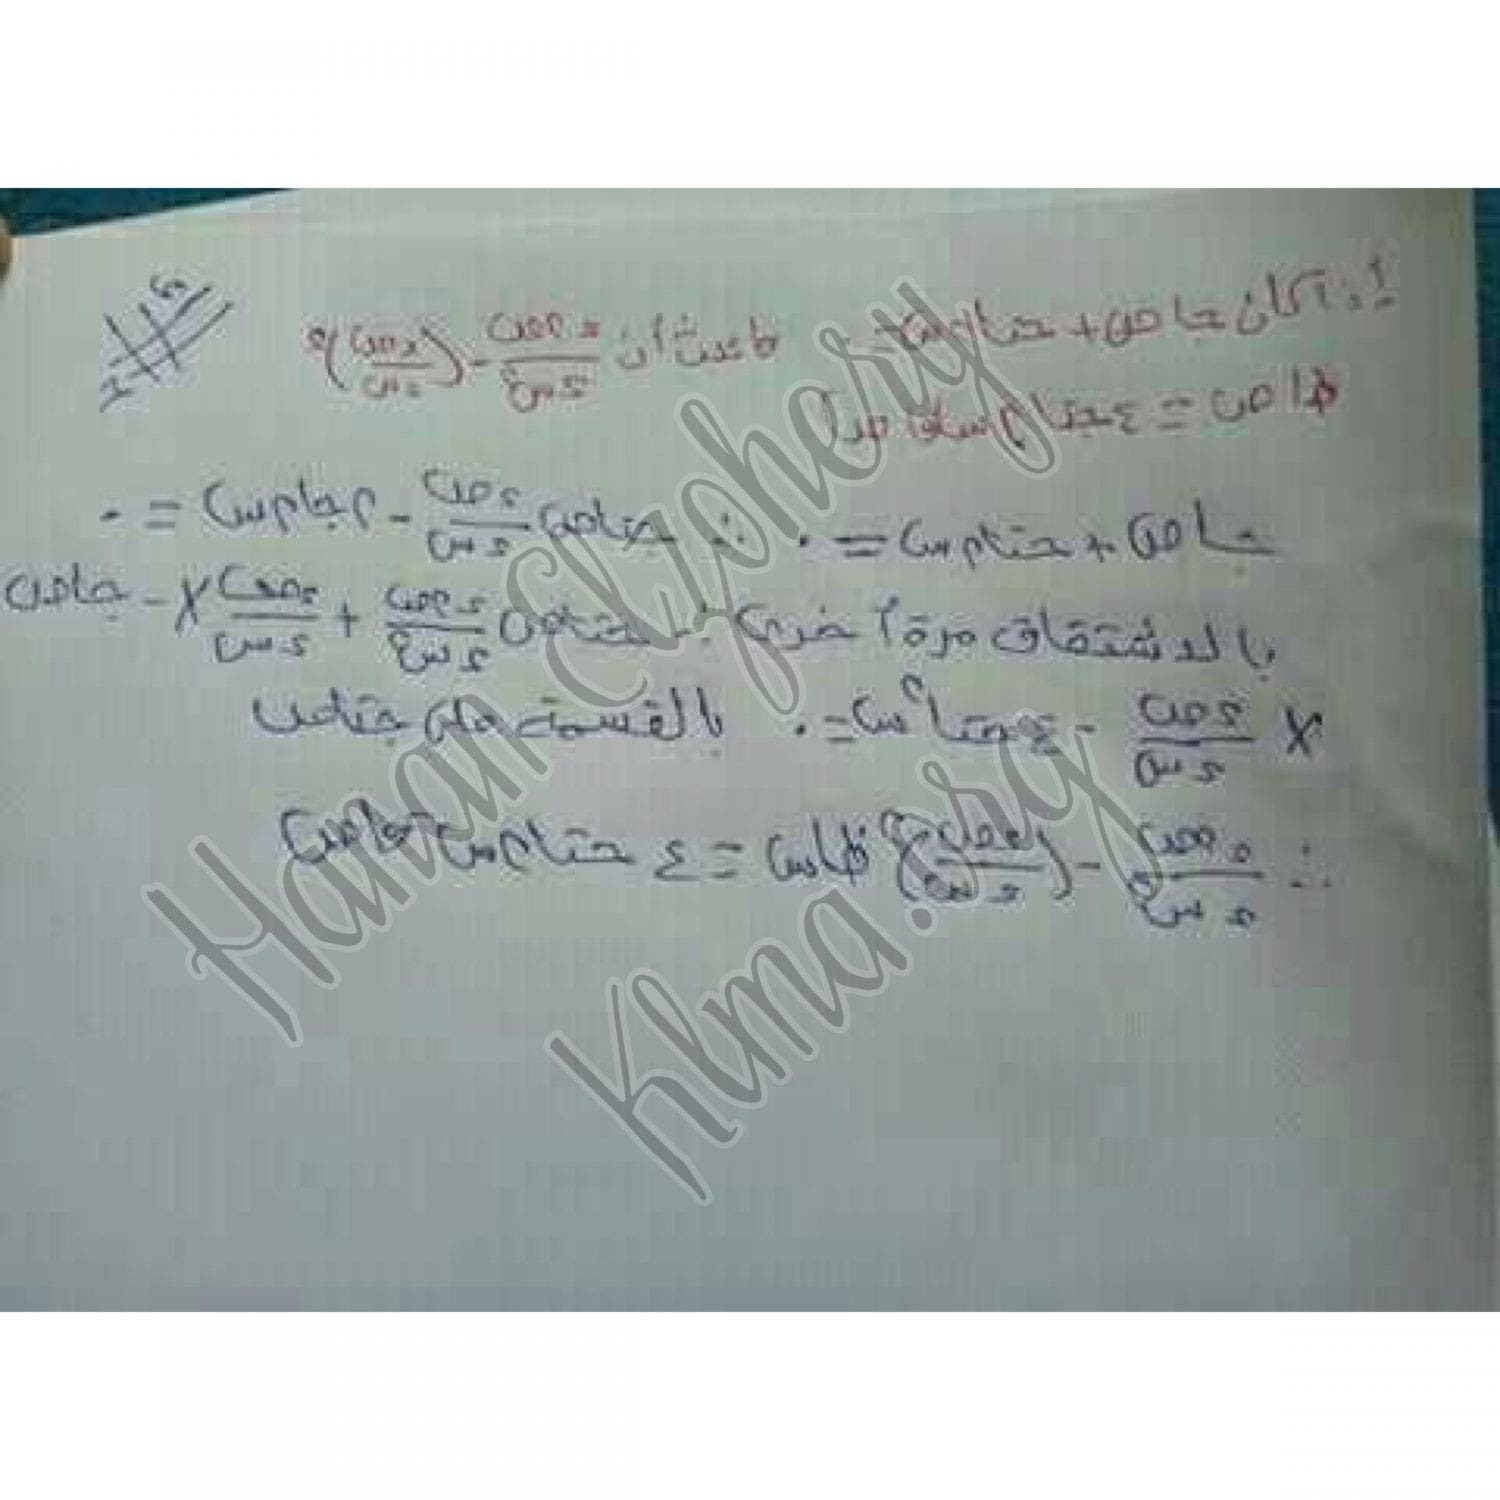 إذا كان جا ص + جتا ٢ س = ٠ فاثبت أن د٢ص/دس٢ - (دص/دس)٢
ظا ص = ٤ جتا ٢ س قا ص
جا ص + جتا ٢ س = ٠ ∴ جتا ص د ص/د س - ٢ جا ٢ س = ٠
بالاشتقاق مرة أخرى ∴ جتا ص د٢ص/د س٢ + د ص/د س × - جا ص
× د ص/د س - ٤ جتا ٢ س = ٠ بالقسمة على جتا ص
∴ د٢ص/د س٢ - (د ص/د س)٢ ظا س = ٤ جتا ٢ س
Hanan Elzphery
Klma.org